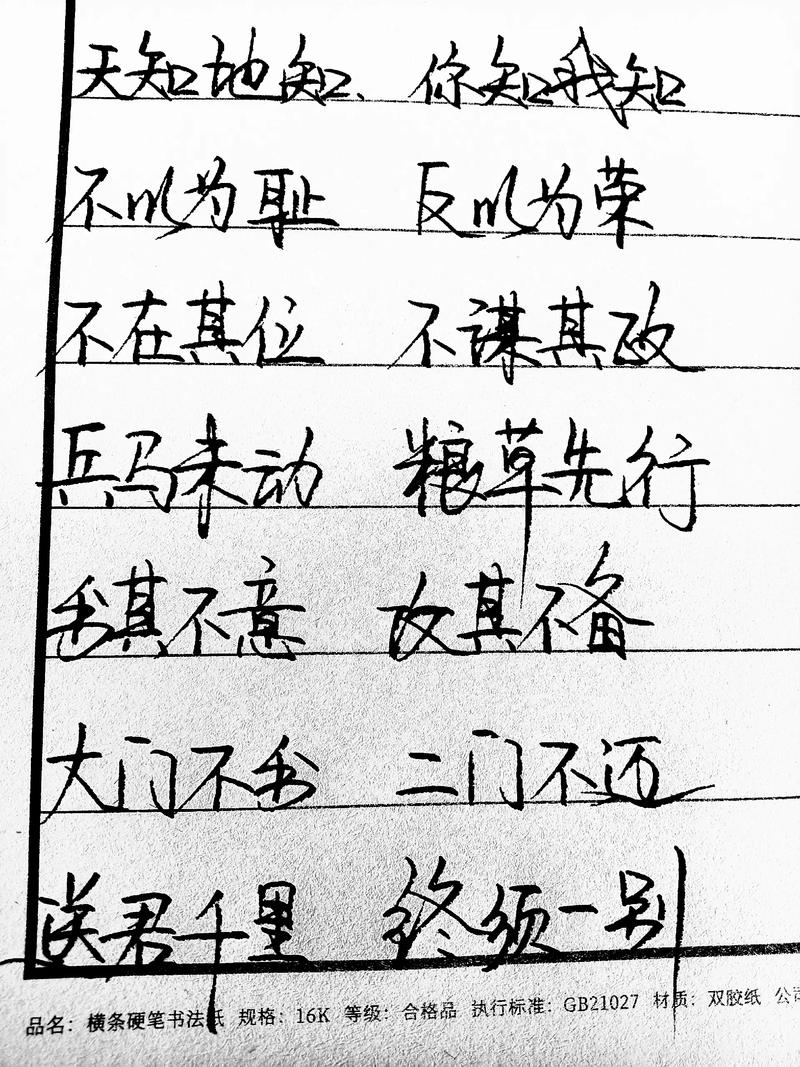 天知地知、 你知我知
不以为耻 反以为荣
不在其位 不谋其政
兵马未动 粮草先行
出其不意 攻其不备
大门不出 二门不迈
送君千里 终须一别
品名：横条硬笔书法纸 规格：16K 等级：合格品 执行标准：GB21027 材质：双胶纸 公司